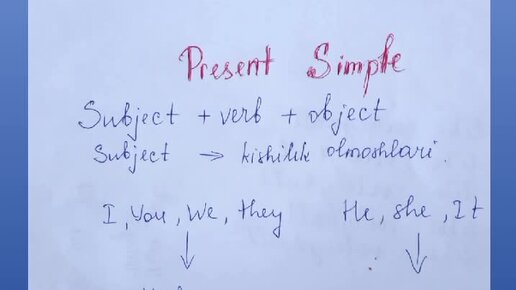 Present Simple
Subject + verb + object
Subject → kishilik olmoshlari.
I, You, We, they He, she, It